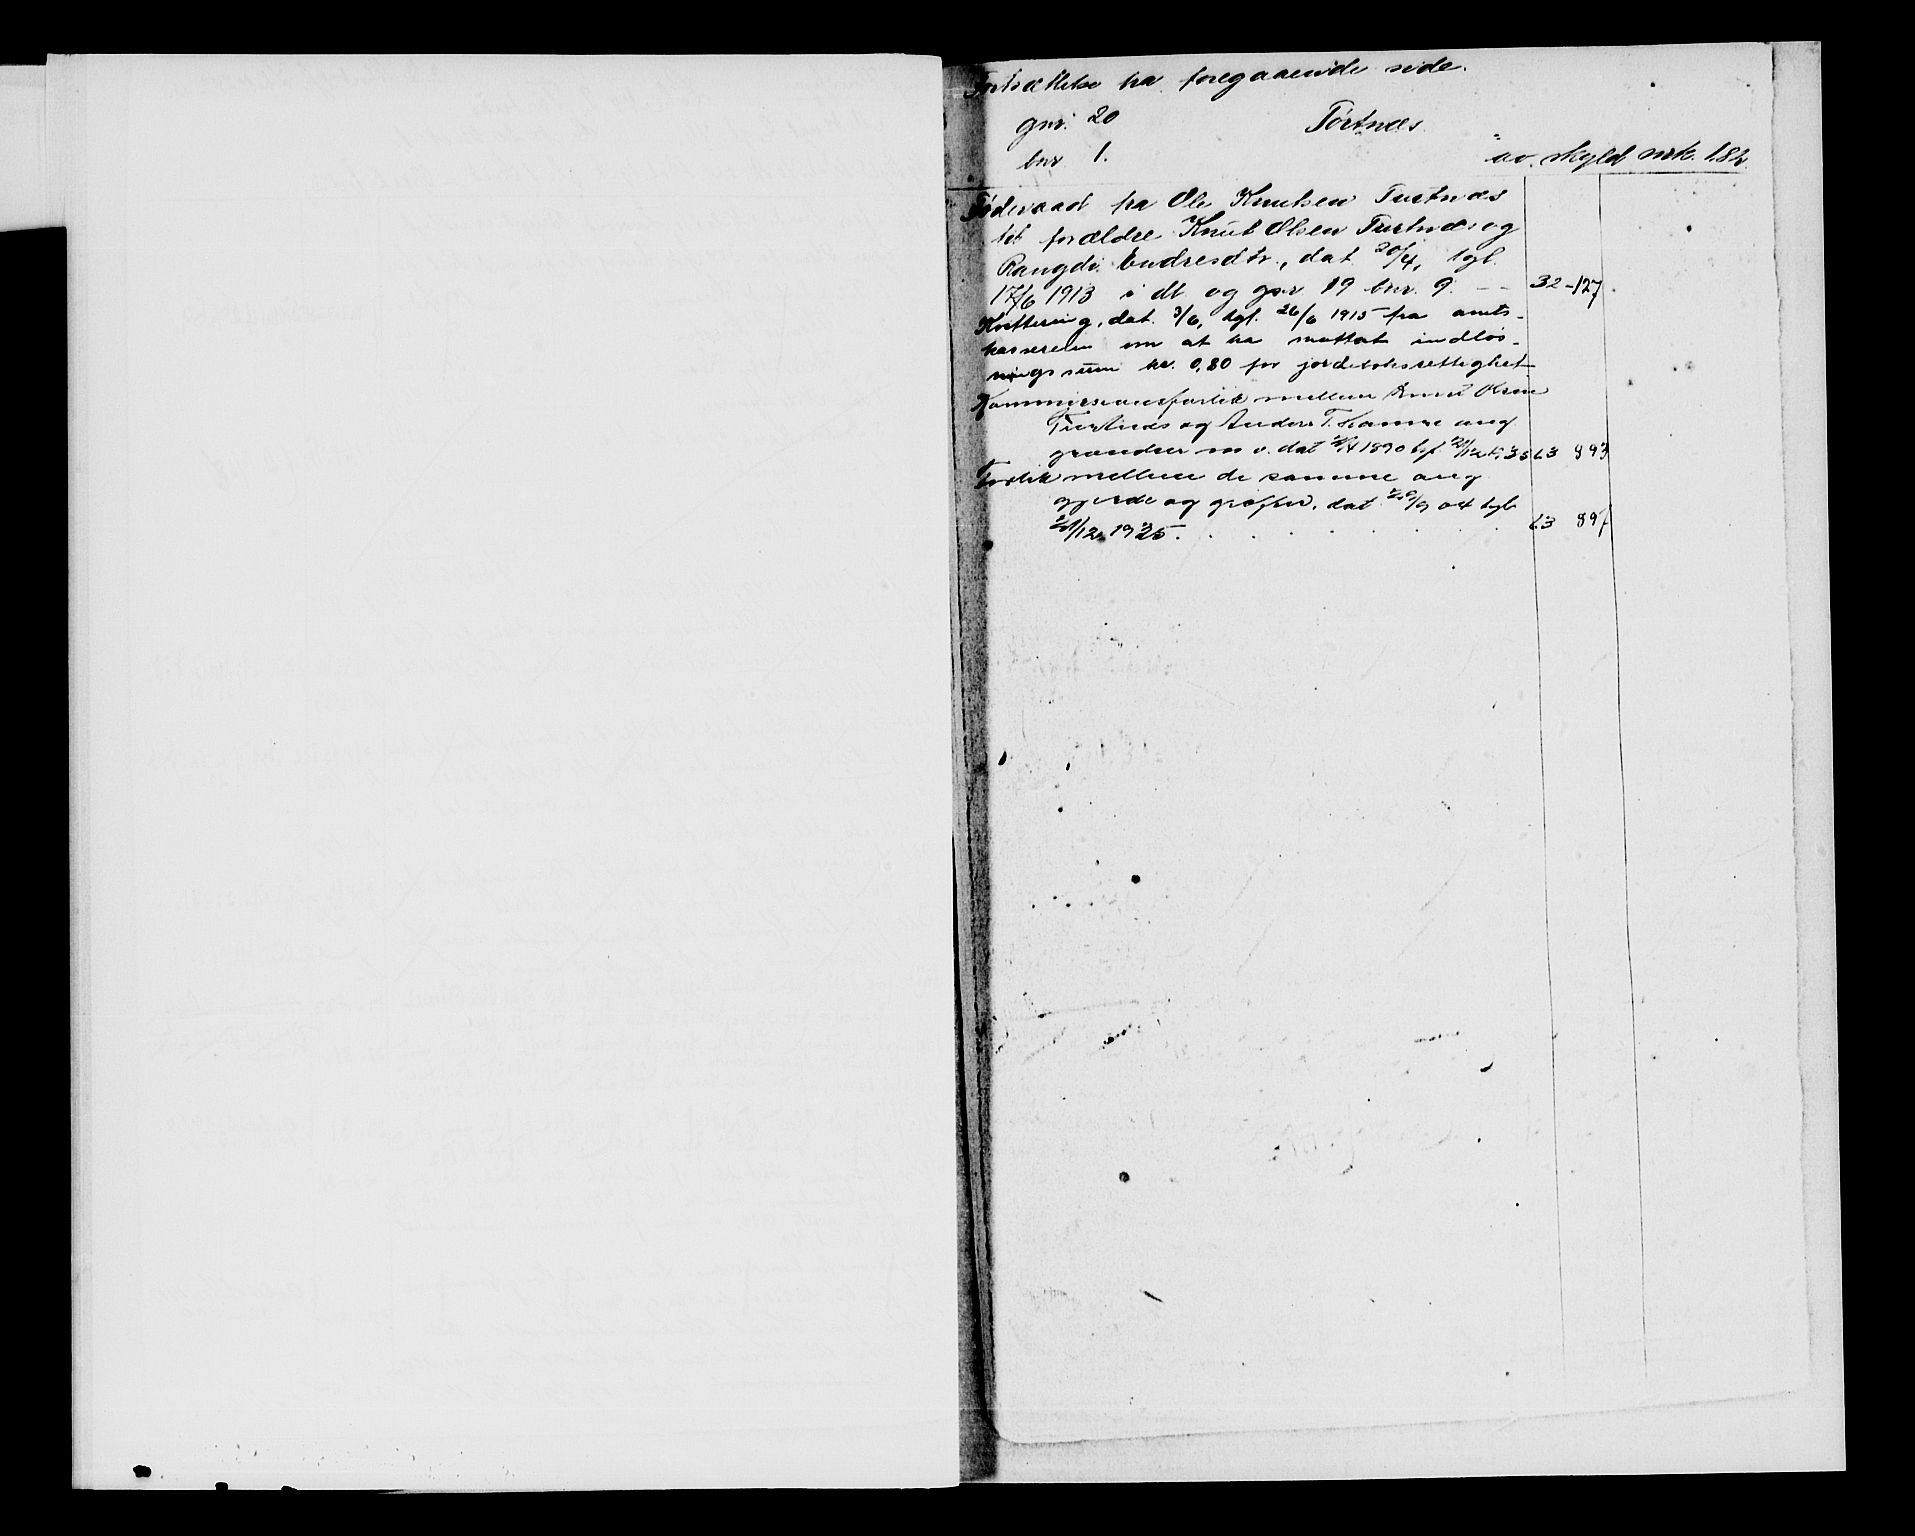 Fortsættelse fra foregaaende side.
gnr. 20 Törtnæs
bnr 1. av skyld mrk. 1.82.
Föderaad fra Ole Knutsen Turtnæs
til forældre Knut Olsen Turtnæs og
Rangdi Endresdtr., dat 20/4, tgl.
17/6 1913 i dt og gnr 19 bnr. 9. - - 32-127.
Kvittering, dat. 3/6, tgl. 26/6 1915 fra amts-
kassereren om at ha mottat indlös-
ningssum kr. 0,80 for jordeboksrettighet
Kommissionsforlik mellem Knut Olsen
Turtnæs og Anders T. Hamre ang
grændser m v. dat 1890 tgl 21/12 1935 63 893
Forlik mellem de samme ang
gjerde og gröfter, dat 20/9 04 tgl
21/12 1935. . . . . . . 63 897